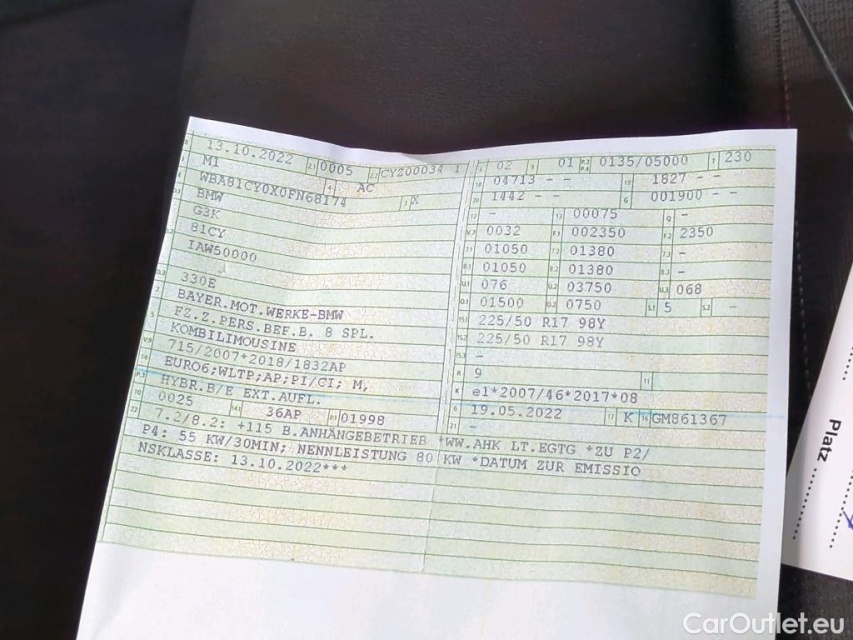 13.10.2022 0005 CYZ00034 1
M1 AC
WBA81CY0X0FN68174 X
BMW
G3K
81CY
IAW50000
330E
BAYER.MOT.WERKE-BMW
FZ.Z.PERS.BEF.B. 8 SPL.
KOMBILIMOUSINE
715/2007*2018/1832AP
EURO6;WLTP;AP;PI/CI; M,
HYBR.B/E EXT.AUFL.
0025 36AP 01998
02 01 0135/05000 230
04713 - - 1827 - -
1442 - - 001900 - -
- 00075 -
0032 002350 2350
01050 01380
01050 01380 -
076 03750 068
01500 0750 5 -
225/50 R17 98Y
225/50 R17 98Y
-
9
e1*2007/46*2017*08
19.05.2022 K GM861367
-
7.2/8.2: +115 B.ANHÄNGEBETRIEB *WW.AHK LT.EGTG *ZU P2/
P4: 55 KW/30MIN; NENNLEISTUNG 80 KW *DATUM ZUR EMISSIO
NSKLASSE: 13.10.2022***
Platz
CarOutlet.eu